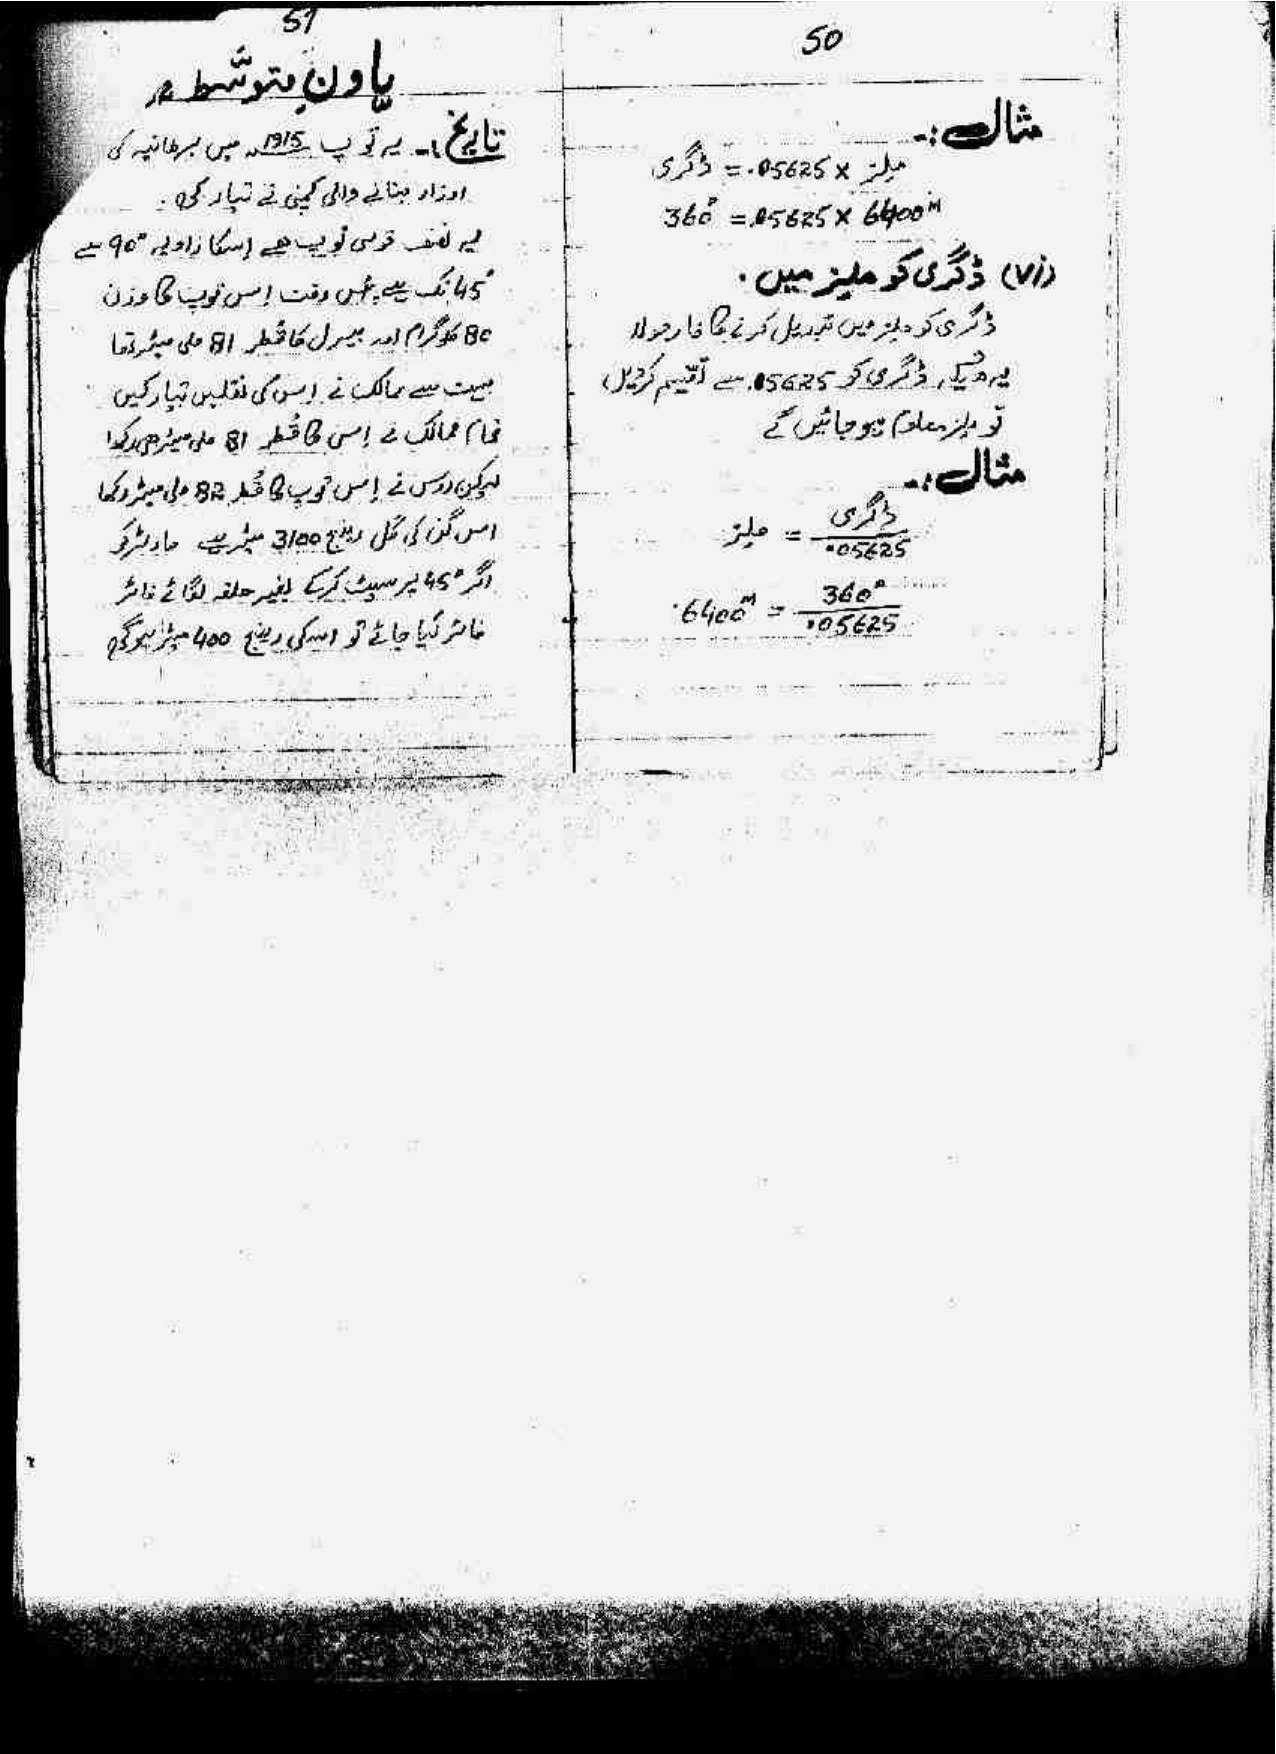 50
مثال :۔
میلز × 05625. = ڈگری
360° = .05625 × 6400ᴹ
(vi) ڈگری کو ملیز میں ۔
ڈگری کو ملیز میں تبدیل کرنے کا فارمولا
یہ ڈگری کو 05625. سے تقسیم کردیں
تو میلز معلوم ہو جائیں گے
مثال :۔
ڈگری / 05625. = میلز
360° / .05625 = 6400ᴹ
51
ہاونِ متوسّط
تاریخ :۔ یہ توپ 1915ء میں برطانیہ کی
اوزار بنانے والی کمپنی نے تیار کی ۔
یہ نصف قوسی توپ ہے اسکا زاویہ 90° سے
45° تک ہے ۔ اس وقت اِس توپ کا وزن
80 کلوگرام اور بیرل کا قُطر 81 ملی میٹر تھا
بہت سے ممالک نے اِس کی نقلیں تیار کیں
تمام ممالک نے اِس کا قُطر 81 ملی میٹر ھی رکھا
لیکن روس نے اِس توپ کا قُطر 82 ملی میٹر رکھا
اس گن کی کُل رینج 3100 میٹر ہے مارٹر کو
اگر 45° پر سیٹ کرکے بغیر حلقہ لگائے فائر
فائر کیا جائے تو اسکی رینج 400 میٹر ہوگی